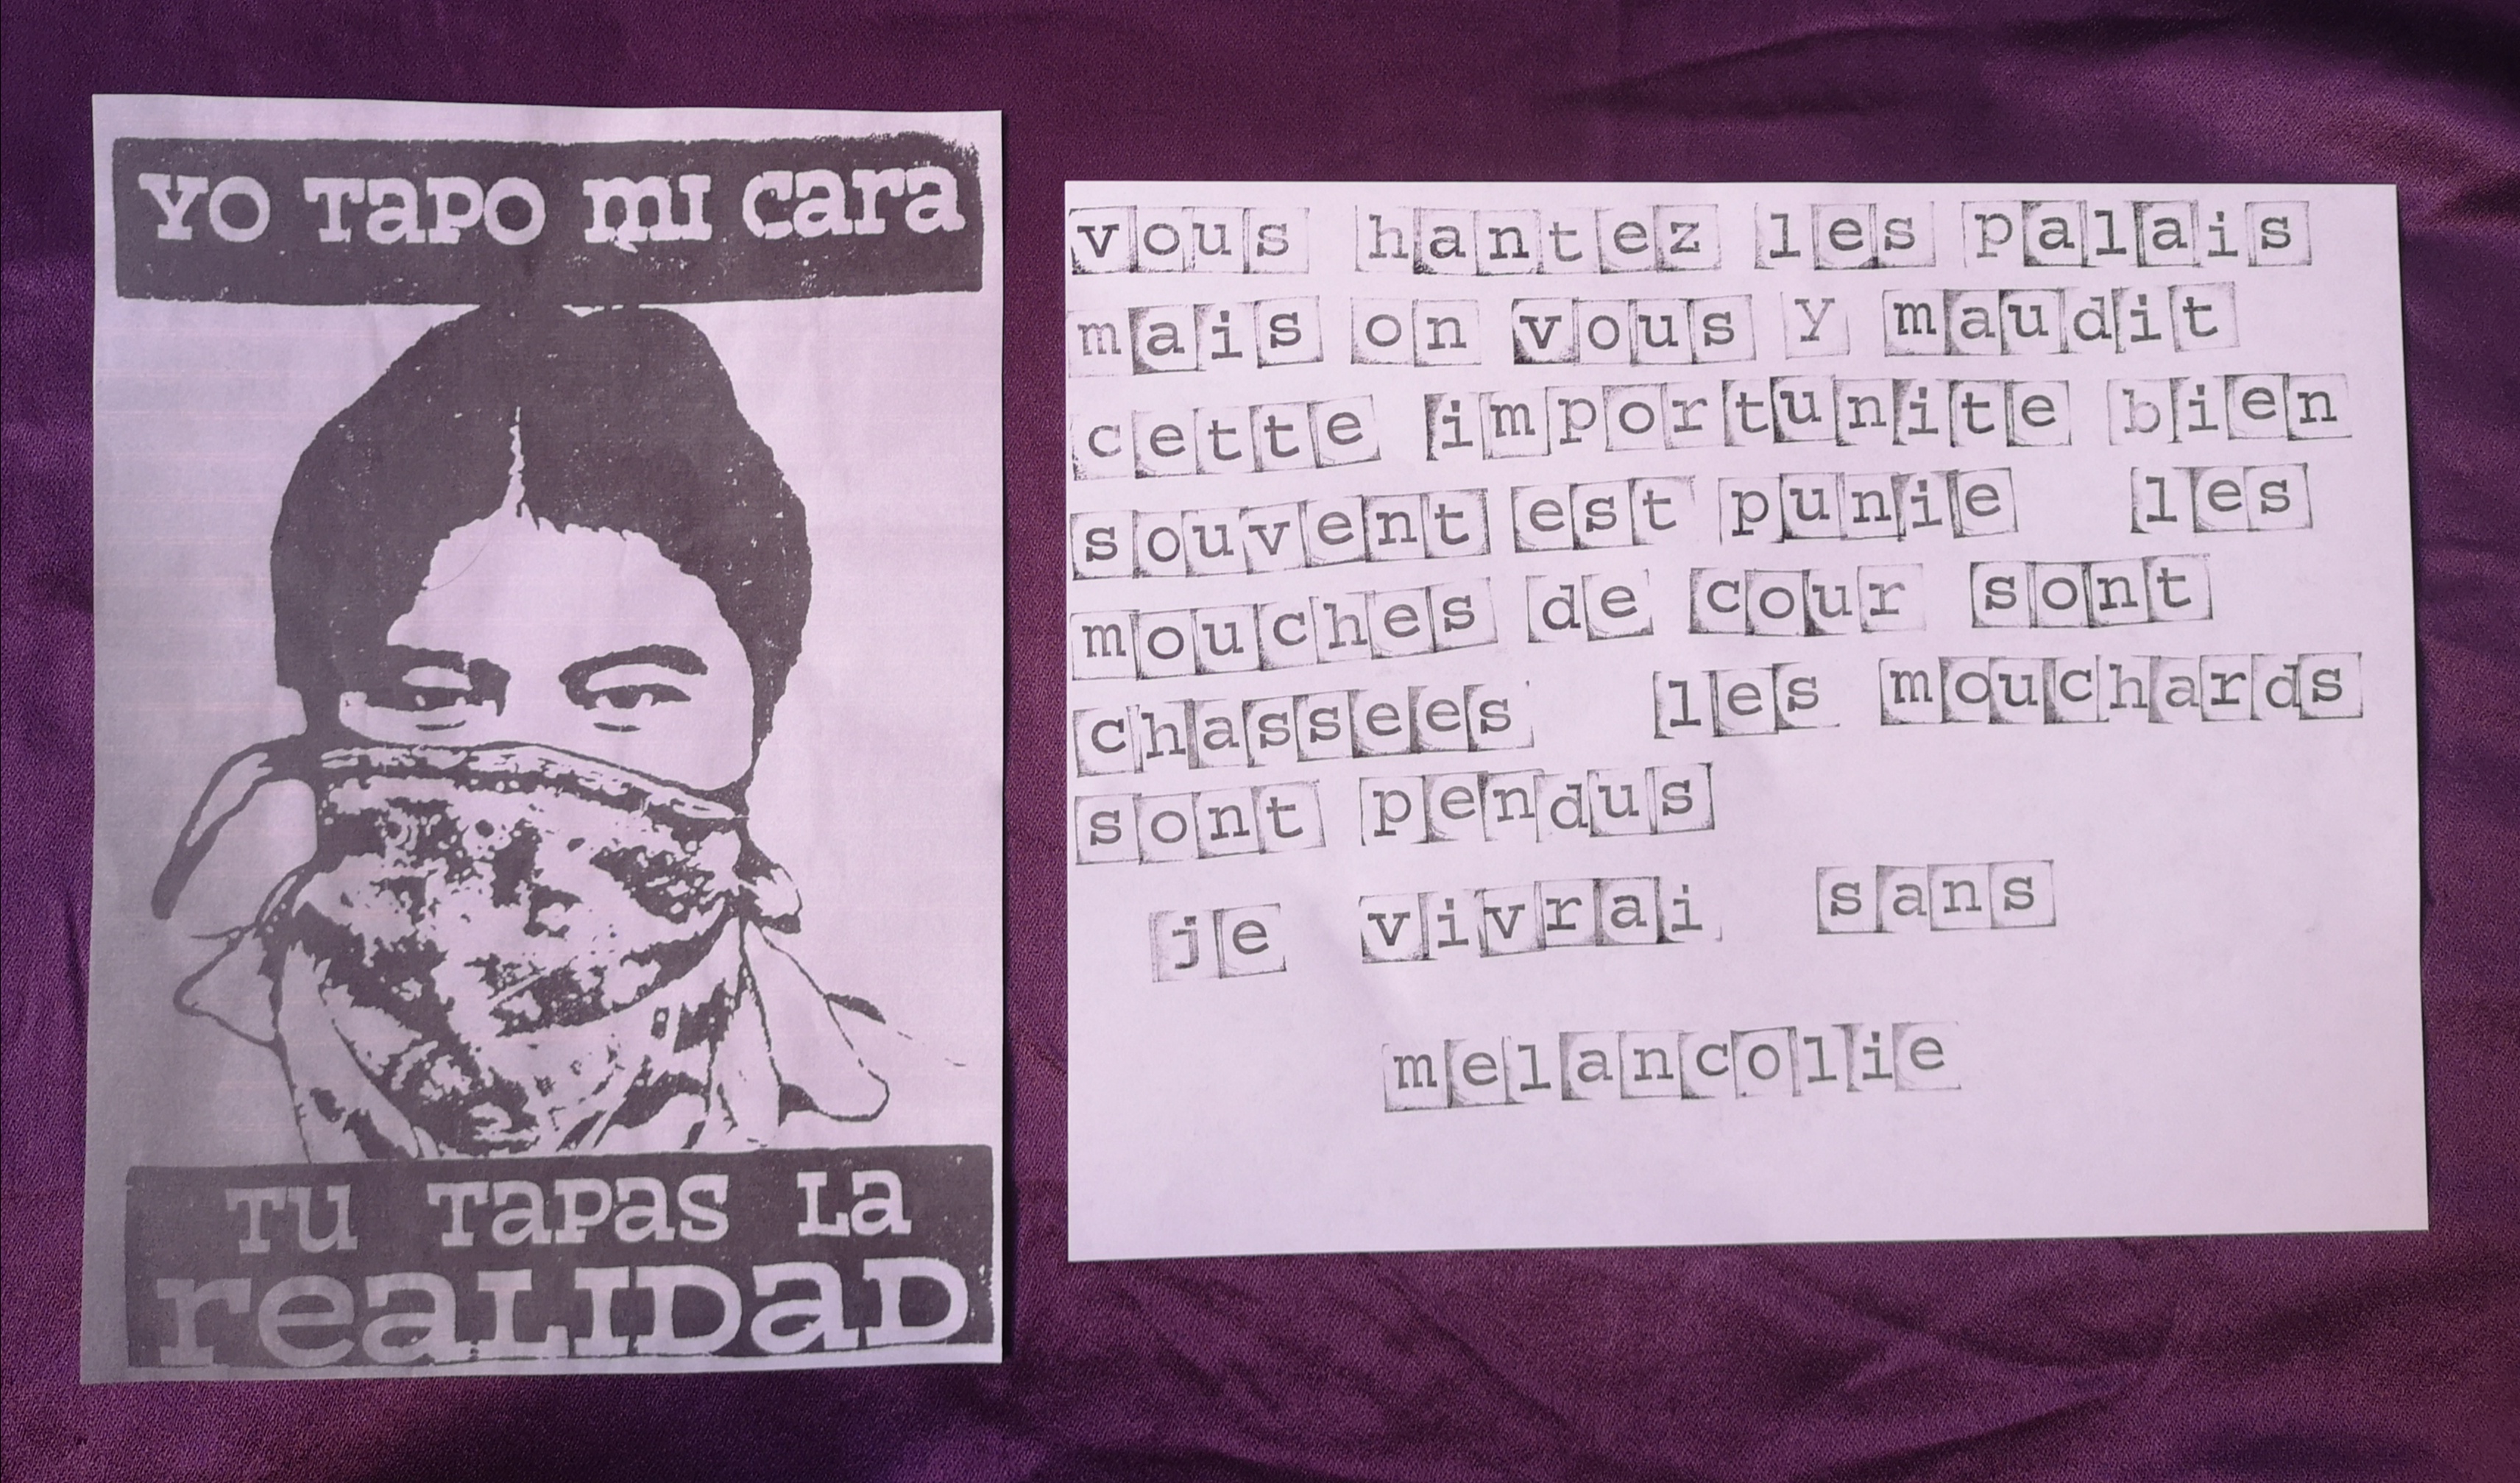 YO TaPO mI cara
TU TaPas La
reaLIDaD
vous hantez les palais
mais on vous y maudit
cette importunite bien
souvent est punie les
mouches de cour sont
chassees les mouchards
sont pendus
je vivrai sans
melancolie